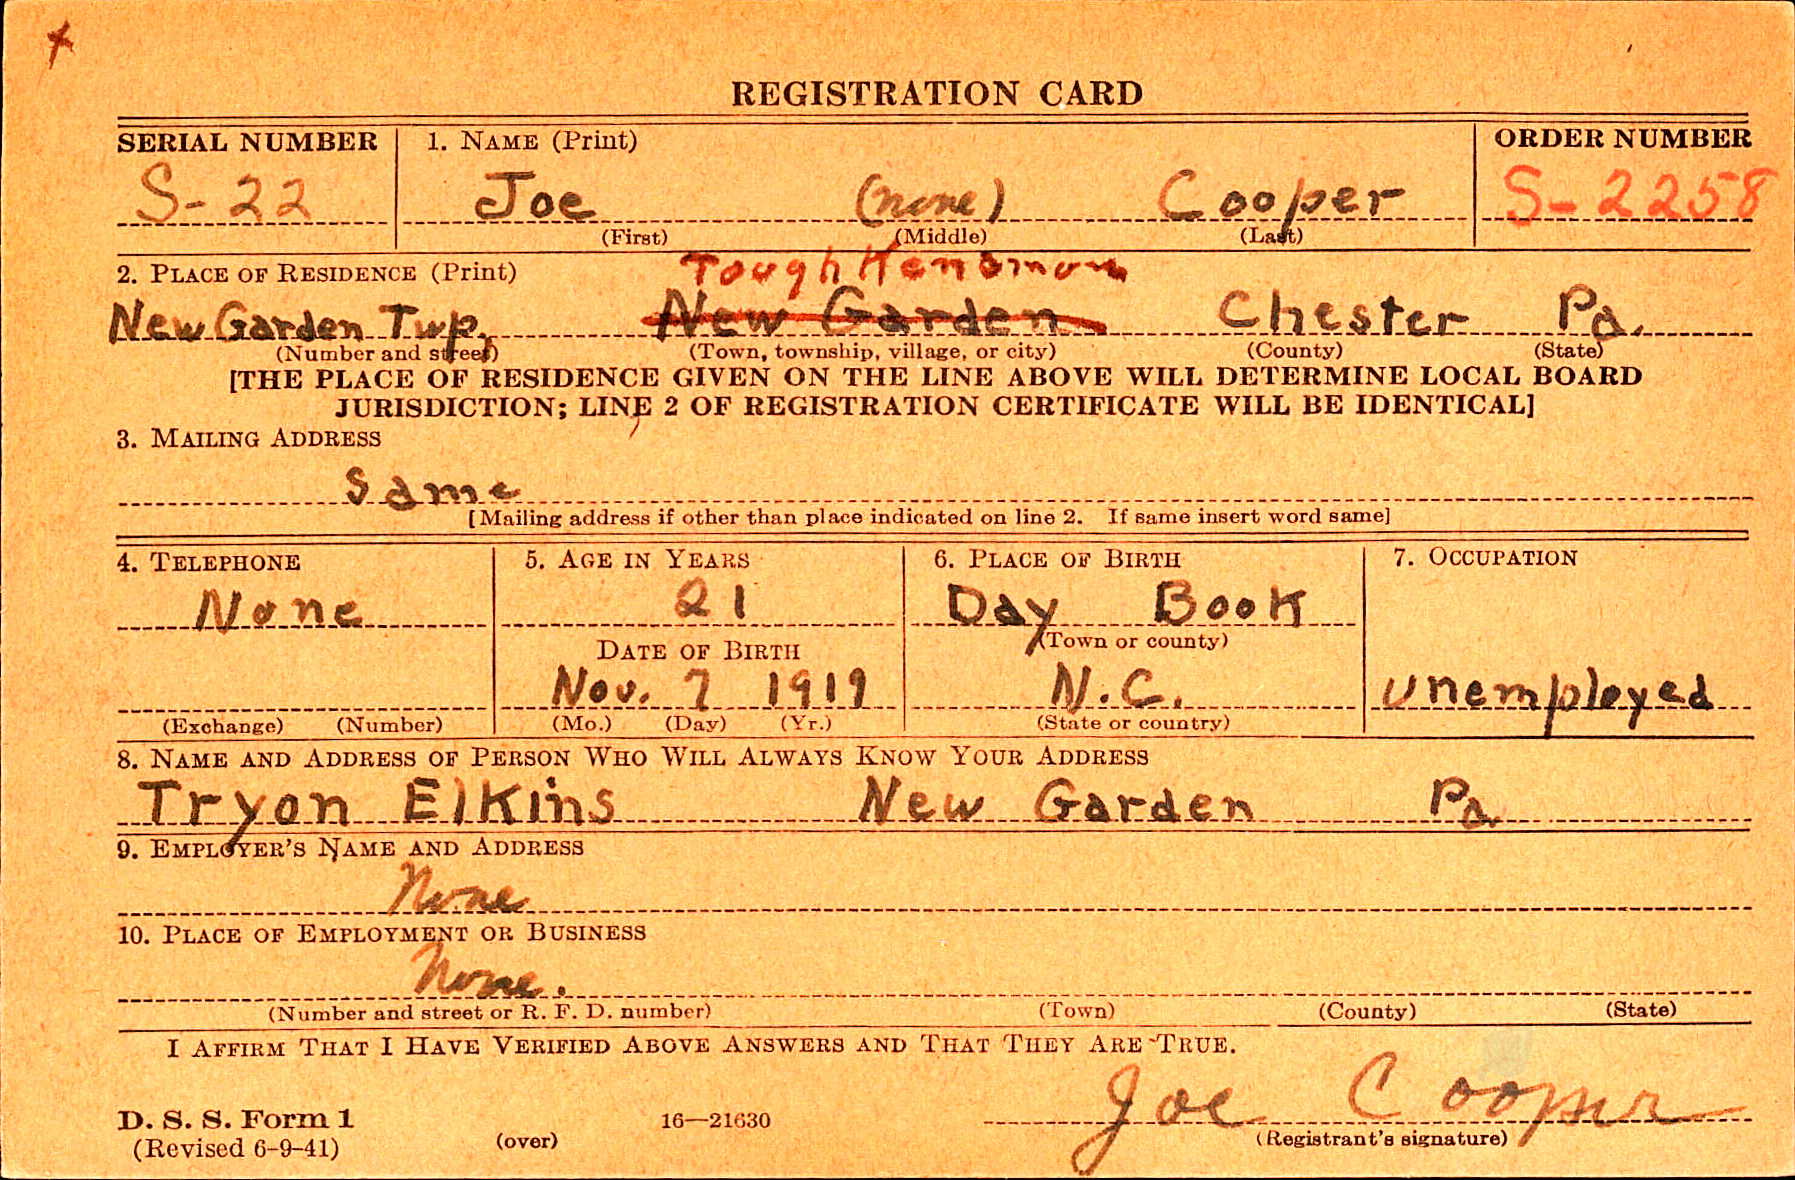 REGISTRATION CARD
SERIAL NUMBER 1. NAME (Print) ORDER NUMBER
S-22 Joe (none) Cooper S-2258
(First) (Middle) (Last)
2. PLACE OF RESIDENCE (Print) Toughkenamon
New Garden Twp. New Garden Chester Pa.
(Number and street) (Town, township, village, or city) (County) (State)
[THE PLACE OF RESIDENCE GIVEN ON THE LINE ABOVE WILL DETERMINE LOCAL BOARD
JURISDICTION; LINE 2 OF REGISTRATION CERTIFICATE WILL BE IDENTICAL]
3. MAILING ADDRESS
Same
[Mailing address if other than place indicated on line 2. If same insert word same]
4. TELEPHONE 5. AGE IN YEARS 6. PLACE OF BIRTH 7. OCCUPATION
None 21 Day Book
DATE OF BIRTH (Town or county)
Nov. 7 1919 N.C. unemployed
(Exchange) (Number) (Mo.) (Day) (Yr.) (State or country)
8. NAME AND ADDRESS OF PERSON WHO WILL ALWAYS KNOW YOUR ADDRESS
Tryon Elkins New Garden Pa.
9. EMPLOYER'S NAME AND ADDRESS
None
10. PLACE OF EMPLOYMENT OR BUSINESS
None.
(Number and street or R. F. D. number) (Town) (County) (State)
I AFFIRM THAT I HAVE VERIFIED ABOVE ANSWERS AND THAT THEY ARE TRUE.
Joe Cooper
D. S. S. Form 1 16—21630
(Revised 6-9-41) (over) (Registrant's signature)